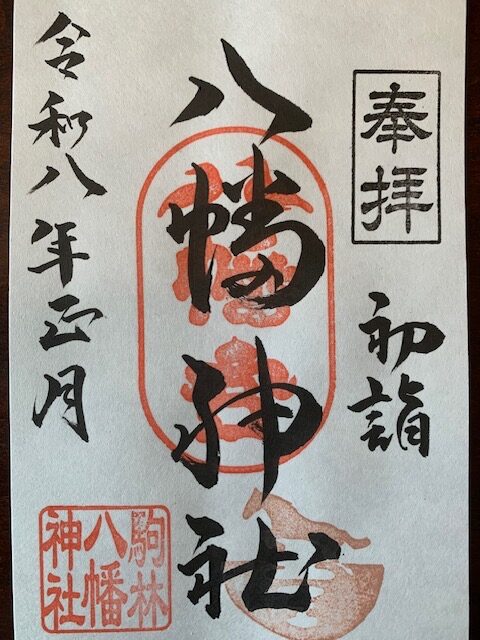 奉拝
初詣
八幡神社
令和八年正月
駒林
八幡
神社